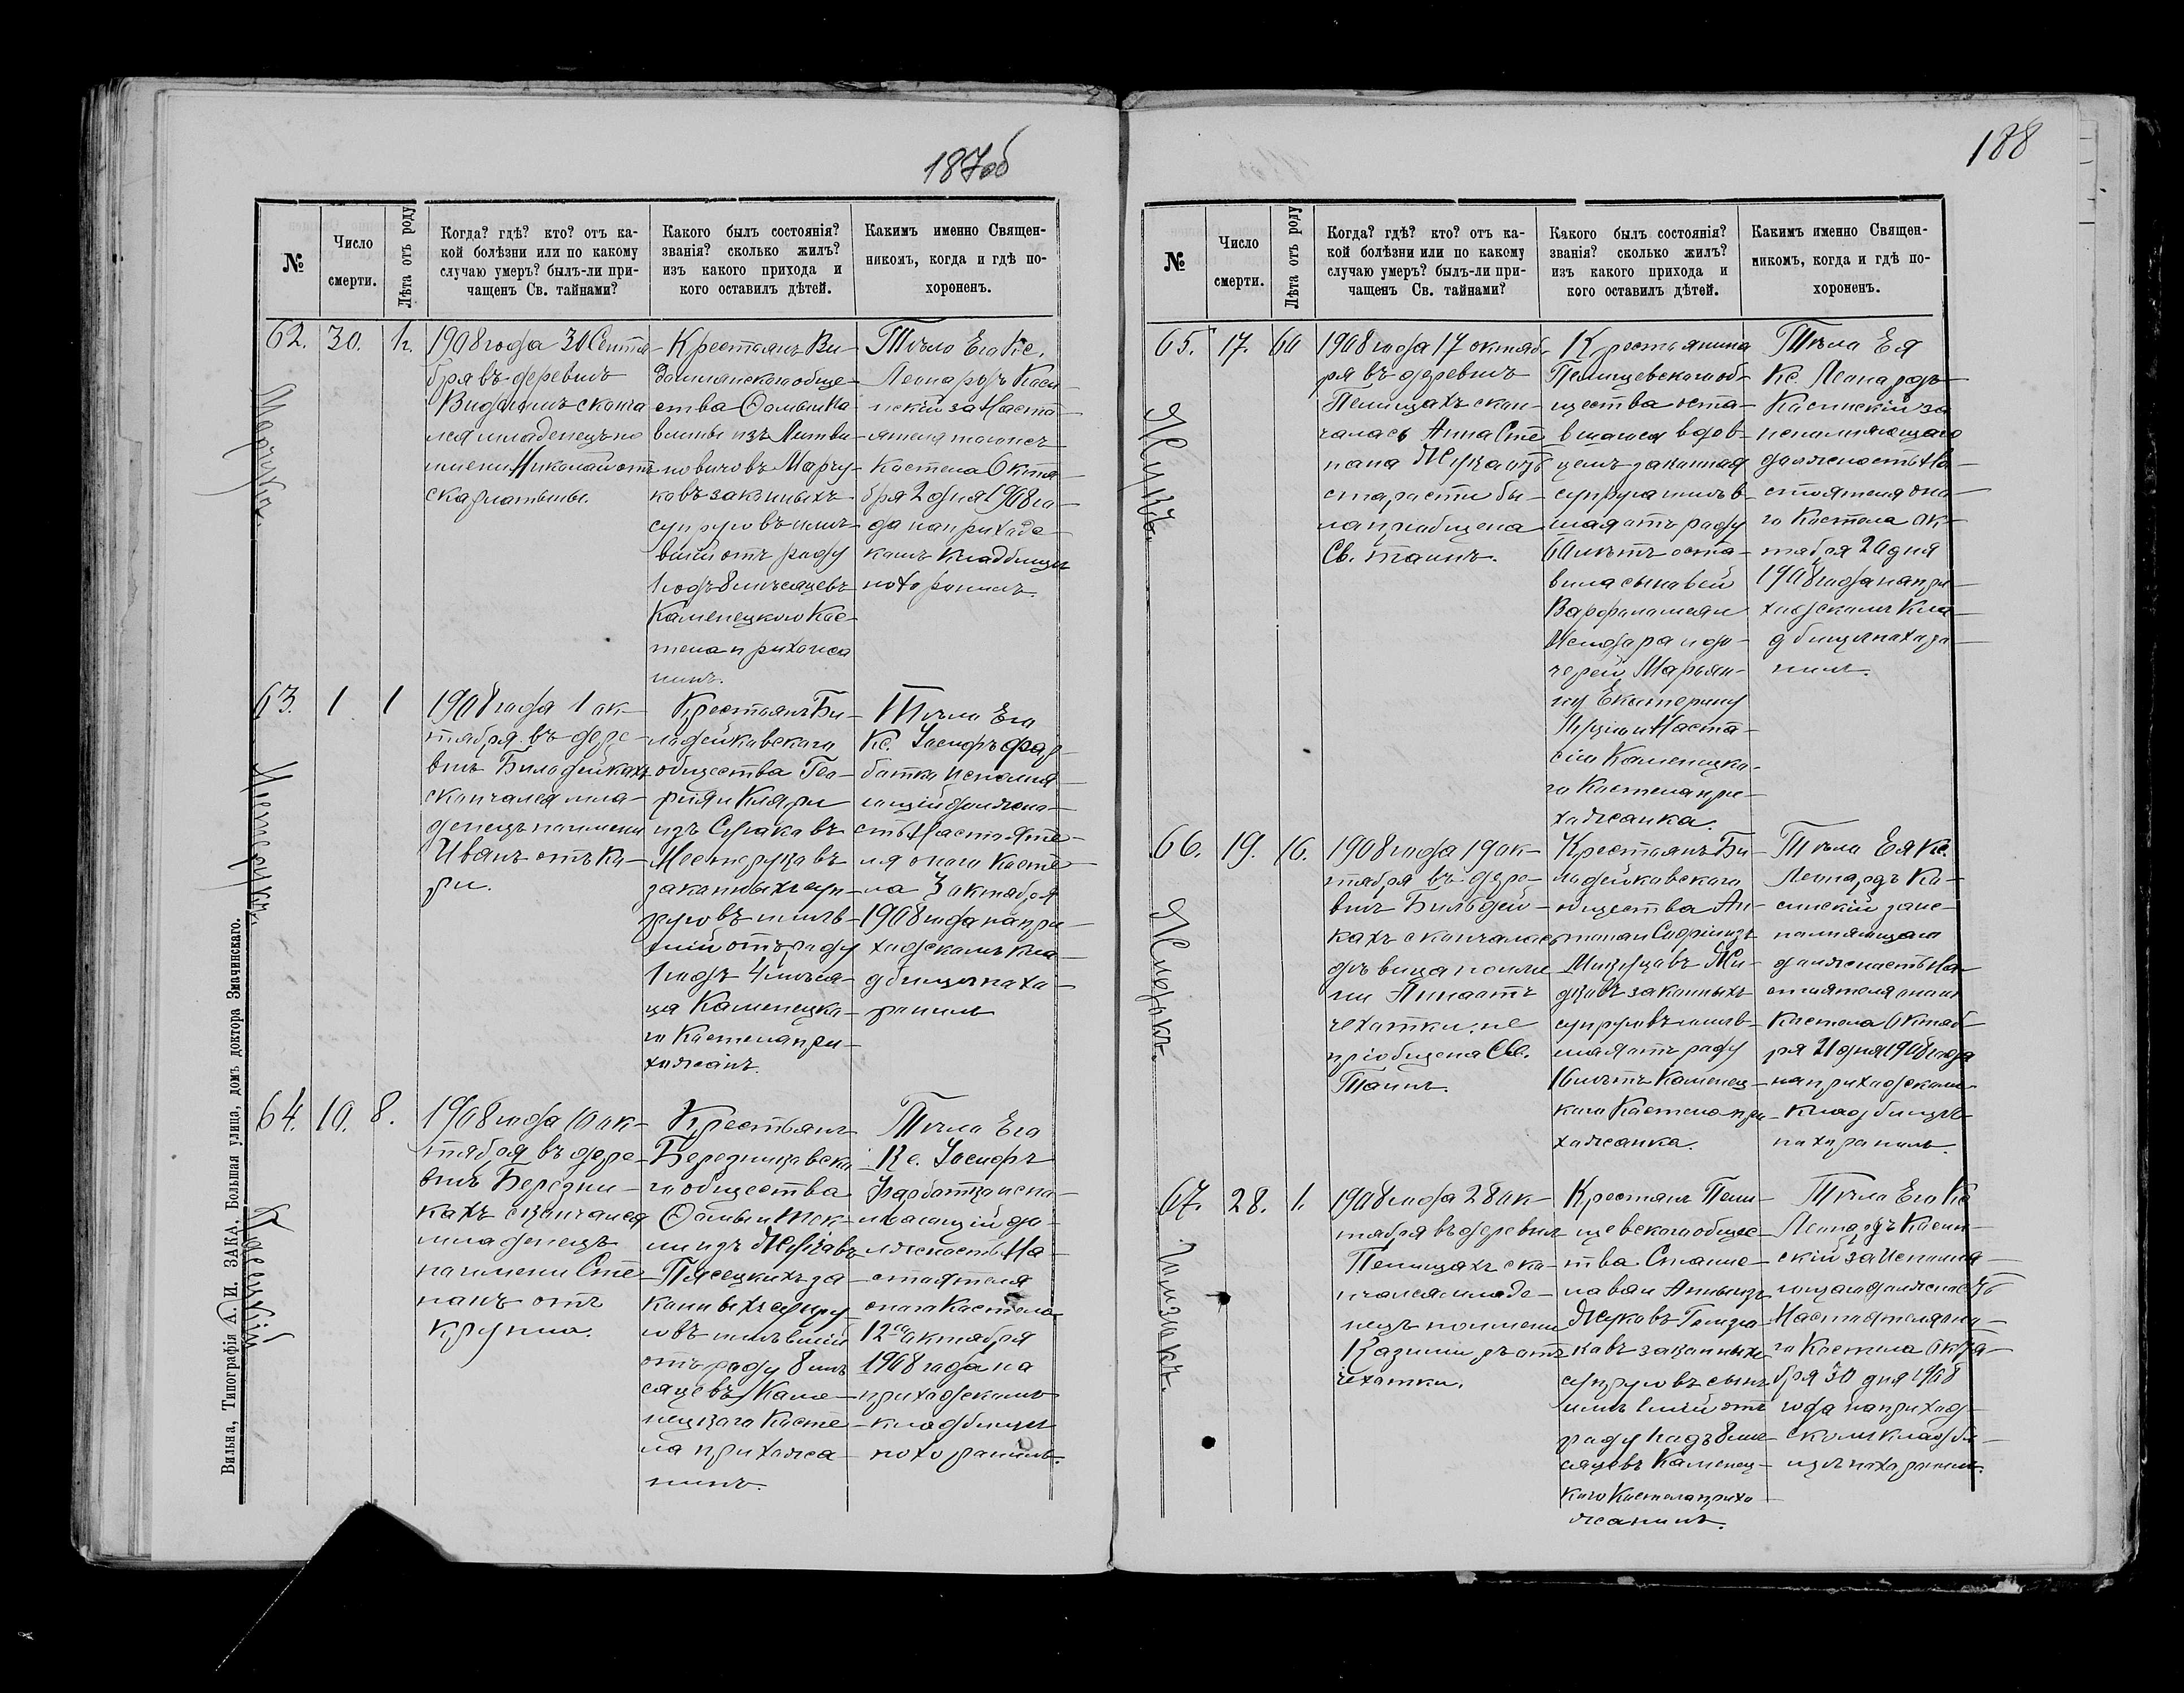 187об
№
Число
смерти.
Лѣта отъ роду
Когда? гдѣ? кто? отъ ка-
кой болѣзни или по какому
случаю умеръ? былъ-ли при-
чащенъ Св. тайнами?
Какого былъ состоянія?
званія? сколько жилъ?
изъ какого прихода и
кого оставилъ дѣтей.
Какимъ именно Священ-
никомъ, когда и гдѣ по-
хороненъ.
62.
30.
1908 года 30 Сентя-
бря въ деревнѣ
скончa
лся младенецъ по
имени Николай отъ
скарлатыны.
Крестьянъ Ви-
обще-
ства
вановичовъ
ковъ законныхъ
супруговъ имѣ-
вшій отъ роду
1 годъ 8 мѣсяцевъ
Каменецкого Кос-
тела прихожа
нинъ.
Тѣло Его Кс.
Леонардъ Касин-
скій за Наста-
ятеля тогожъ
Костела Октя-
бря 2 дня 1908 го-
да на приходс-
комъ Кладбищи
похоронилъ.
63.
1
1
1908 года 1 ок-
тября въ дере-
внѣ Биладейкахъ
скончался мла-
денецъ по имени
Иванъ отъ Ко-
ри.
Крестьянъ Би-
ладейковскаго
общества Гео-
ргія и Кляры
изъ
Нестеруковъ
законныхъ суп-
руговъ имѣв-
шій отъ роду
1 годъ 4 мѣся-
ца Каменецка-
го Костела при-
хожанъ.
Тѣло Его
Кс. Іосифъ
исполня-
ющій должно-
сть Настояте-
ля онаго Косте-
ла 3 октября
1908 года на при-
ходскомъ кла-
дбищи похо-
ронилъ
64.
10.
8.
1908 года 10 ок-
тября въ дере-
внѣ Березни-
кахъ скончался
младенецъ
по имени Сте-
панъ отъ
крупа.
Крестьянъ
го общества
Фомы и Тек-
ли изъ Жуковъ
Пясецкихъ за-
конныхъ супру-
говъ имѣвшій
отъ роду 8 мѣ
сяцевъ Каме-
нецкаго Косте-
ла прихожа-
нинъ.
Тѣло Его
Кс. Іосифъ
испо-
лняющій до-
лжность На-
стоятеля
онаго Костела
12го октября
1908 года на
приходскомъ
кладбищи
похоронилъ.
Вильна, Типографія А. И. ЗАКА, Большая улица, домъ доктора Змачинскаго.
188
№
Число
смерти.
Лѣта отъ роду
Когда? гдѣ? кто? отъ ка-
кой болѣзни или по какому
случаю умеръ? былъ-ли при-
чащенъ Св. тайнами?
Какого былъ состоянія?
званія? сколько жилъ?
изъ какого прихода и
кого оставилъ дѣтей.
Какимъ именно Священ-
никомъ, когда и гдѣ по-
хороненъ.
65.
17.
60
Жукъ.
1908 года 17 октяб-
ря въ деревнѣ
Пелищахъ скон-
чалась Анна Сте
пана Жука отъ
старости бы-
ла приобщена
Св. таинъ.
Крестьянина
Пелищевскаго об-
щества оста-
вшагося вдов-
цемъ законная
супруга имѣв-
шая отъ роду
60 лѣтъ оста-
вила сыновей
Варфоломея
Исидора и до-
черей Марьян-
ну Екатерину
Наста-
сію Каменецка-
го Костела при-
хожанка.
Тѣло Ея
Кс. Леонардъ
Касинскій за
исполняющаго
должность На-
стоятеля она-
го Костела Ок-
тября 20 дня
1908 года на при-
ходскомъ кла-
дбищи похоро-
нилъ.
66.
19.
16.
1908 года 19 ок-
тября въ дере-
внѣ Бильдей-
кахъ скончалась
дѣвица по име
ни Анна отъ
чахотки. не
пріобщена Св.
Таинъ.
Крестьянъ Би-
ладейковскаго
общества Ан-
тона и Софіи изъ
законныхъ
супруговъ имѣв-
шая отъ роду
16 лѣтъ Каменец-
каго Костела при-
хожанка.
Тѣло Ея Кс.
Леонардъ Ка-
синскій заис-
полняющаго
должность На-
стоятеля онаго
Костела Октяб-
ря 21 дня 1908 года
на приходскомъ
кладбищѣ
похоронилъ.
67.
28.
1.
1908 года 28 ок-
тября въ деревнѣ
Пелищахъ ско-
нчался младе-
нецъ по имени
Казиміръ отъ
чахотки.
Крестьянъ Пели-
щевскаго общес-
тва Станис-
лава и Анны изъ
Жуковъ
ковъ законныхъ
супруговъ сынъ
имѣвшій отъ
роду 1 годъ 8 мѣ-
сяцевъ Каменец-
каго Костела прихо-
жанинъ.
Тѣло Его Кс
Леонардъ Касин-
скій за исполня-
ющаго должность
Настоятеля она-
го Костела Октя-
бря 30 дня 1908
года на приход-
скомъ кладби-
щѣ похоронилъ.